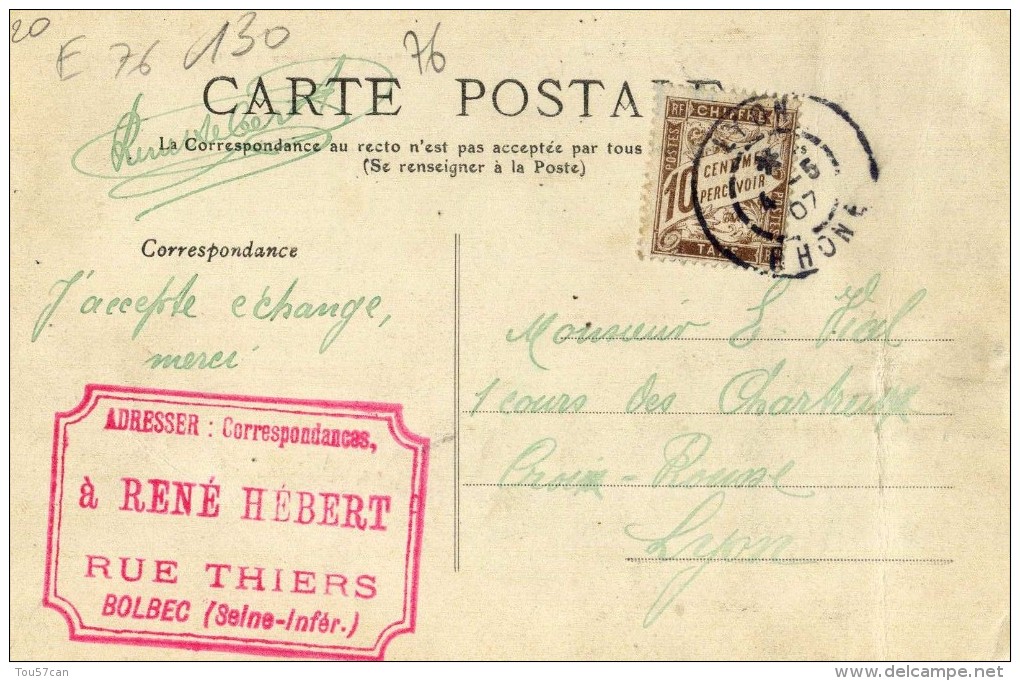 20
E 76 130 76
CARTE POSTALE
René Hébert
La Correspondance au recto n'est pas acceptée par tous
(Se renseigner à la Poste)
RF CHIFFR
POSTES
10 CENTIM
PERCEVOIR
TAXE
POSTES
LYON
4 -5
07
RHONE
Correspondance
J'accepte échange,
merci
ADRESSER : Correspondances,
à RENÉ HÉBERT
RUE THIERS
BOLBEC (Seine-Infér.)
Monsieur E. Vial
1 cours des Chartreux
Croix-Rousse
Lyon
Tou57can
www.delcampe.net